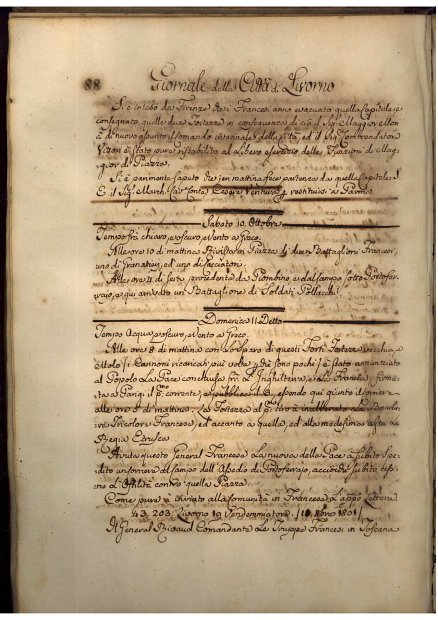 88 Giornale della Città di Livorno
Si è inteso da Firenze che i Francesi anno evacuato quella Capitale, e
consegnato quelle due Fortezze in conseguenza di ciò il Sig. Maggior
à di nuovo assunto il Comando interinale della Città, ed il Sig.
è stato pure ristabilito al libero esercizio delle Funzioni di Mag-
gior di Piazza.
Si è parimente saputo che ieri mattina fece partenza da quella Capitale S.
E. il Sig. March. Conte Cesare Ventura p. restituirsi à Parma.
Sabato 10. Ottobre
Tempo chiaro, e oscuro, e Vento a Greco.
Alle ore 10 di mattina Rivista in Piazza di due Battaglioni Francesi,
uno di Granatieri, ed uno di Cacciatori.
Alle ore 4 di sera, proveniente da Piombino, e dal campo sotto Portofer-
rajo, e qui arrivato un Battaglione di Soldati Pollacchi.
Domenica 11. Detto
Tempo Acqua, e oscuro, e Vento a Greco
Alle ore 8 di mattina con lo Sparo di questi Forti Fortezza Vecchia, e
e Molo (i Cannoni ricaricati più volte, che sono pochi) è stato annunziato
al Popolo La Pace conclusa frà L'Inghilterra, e La Francia, firma-
ta a Parigi il p.mo corrente, e pubblicata il 6, essendo qui giunto il Corriere
alle ore 5 di mattina. La Fortezza al p.mo tiro à inalberato La Bandie-
ra Tricolore Francese, ed accanto a quella, ed alla medesima asta La
Regia Etrusca
Avuta questo General Francese La nuova della Pace à subito spe-
dito un Corriere al campo dell'Assedio di Portoferrajo, acciocche subito cessi-
no L'Ostilità contro quella Piazza.
Come pure à inviato alla Comunità in Francese L'app.o Lettera
N. 203. Livorno 19 Vendemmiatore (11. 8bre 1801)
Il General Rigaud Comandante Le Truppe Francesi in Toscana